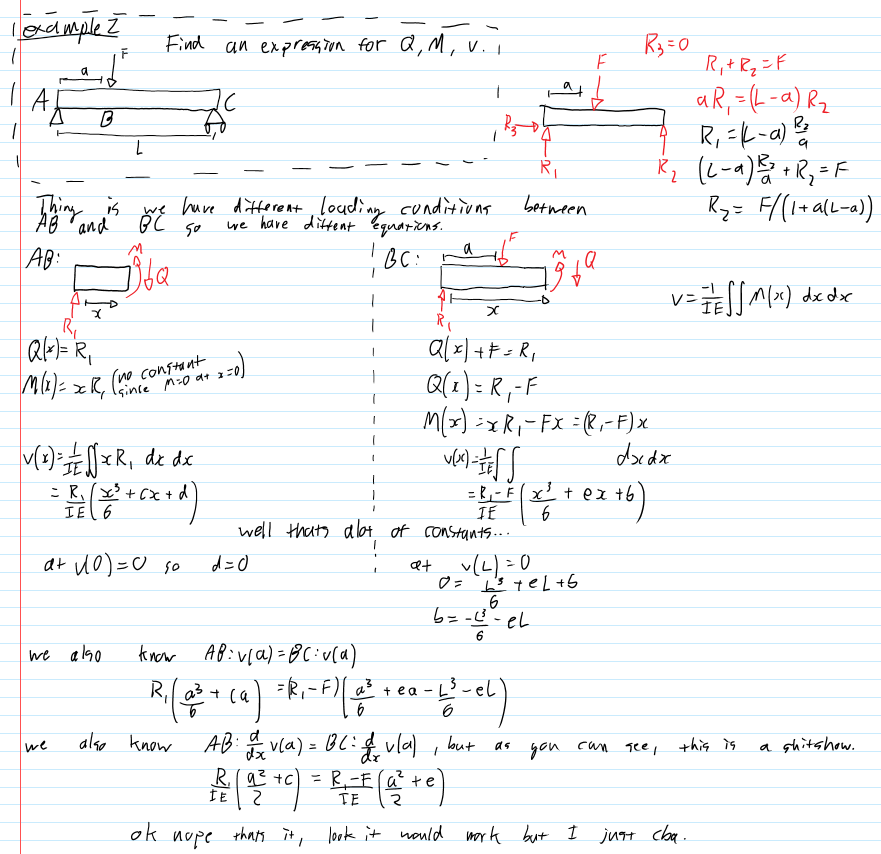 example 2
Find an expression for Q, M, v.
F
a
A
B
C
L
R₃=0
F
R₁+R₂=F
a
aR₁=(L-a)R₂
R₃
R₁=(L-a) R₂/a
R₁
R₂
(L-a) R₂/a + R₂ = F
R₂ = F/(1+a(L-a))
Thing is we have different loading conditions between
AB and BC so we have diffent equations.
AB:
M
Q
x
R₁
Q(x)=R₁
M(x)= xR₁ (no constant
since M=0 at x=0)
v(x)= 1/IE ∬ xR₁ dx dx
= R₁/IE (x³/6 + cx + d)
BC:
a
F
M
Q
x
R₁
v = -1/IE ∬ M(x) dx dx
Q(x)+F=R₁
Q(x)=R₁-F
M(x) = xR₁-Fx = (R₁-F)x
v(x)= 1/IE ∬ dx dx
= R₁-F/IE (x³/6 + ex + b)
well thats alot of constants...
at v(0)=0 so d=0
at v(L)=0
0= L³/6 + eL + b
b= -L³/6 - eL
we also know AB:v(a)=BC:v(a)
R₁(a³/6 + ca) = (R₁-F)(a³/6 + ea - L³/6 - eL)
we also know AB: d/dx v(a) = BC: d/dx v(a), but as you can see, this is a shitshow.
R₁/IE (a²/2 + c) = R₁-F/IE (a²/2 + e)
ok nope thats it, look it would work but I just cba.